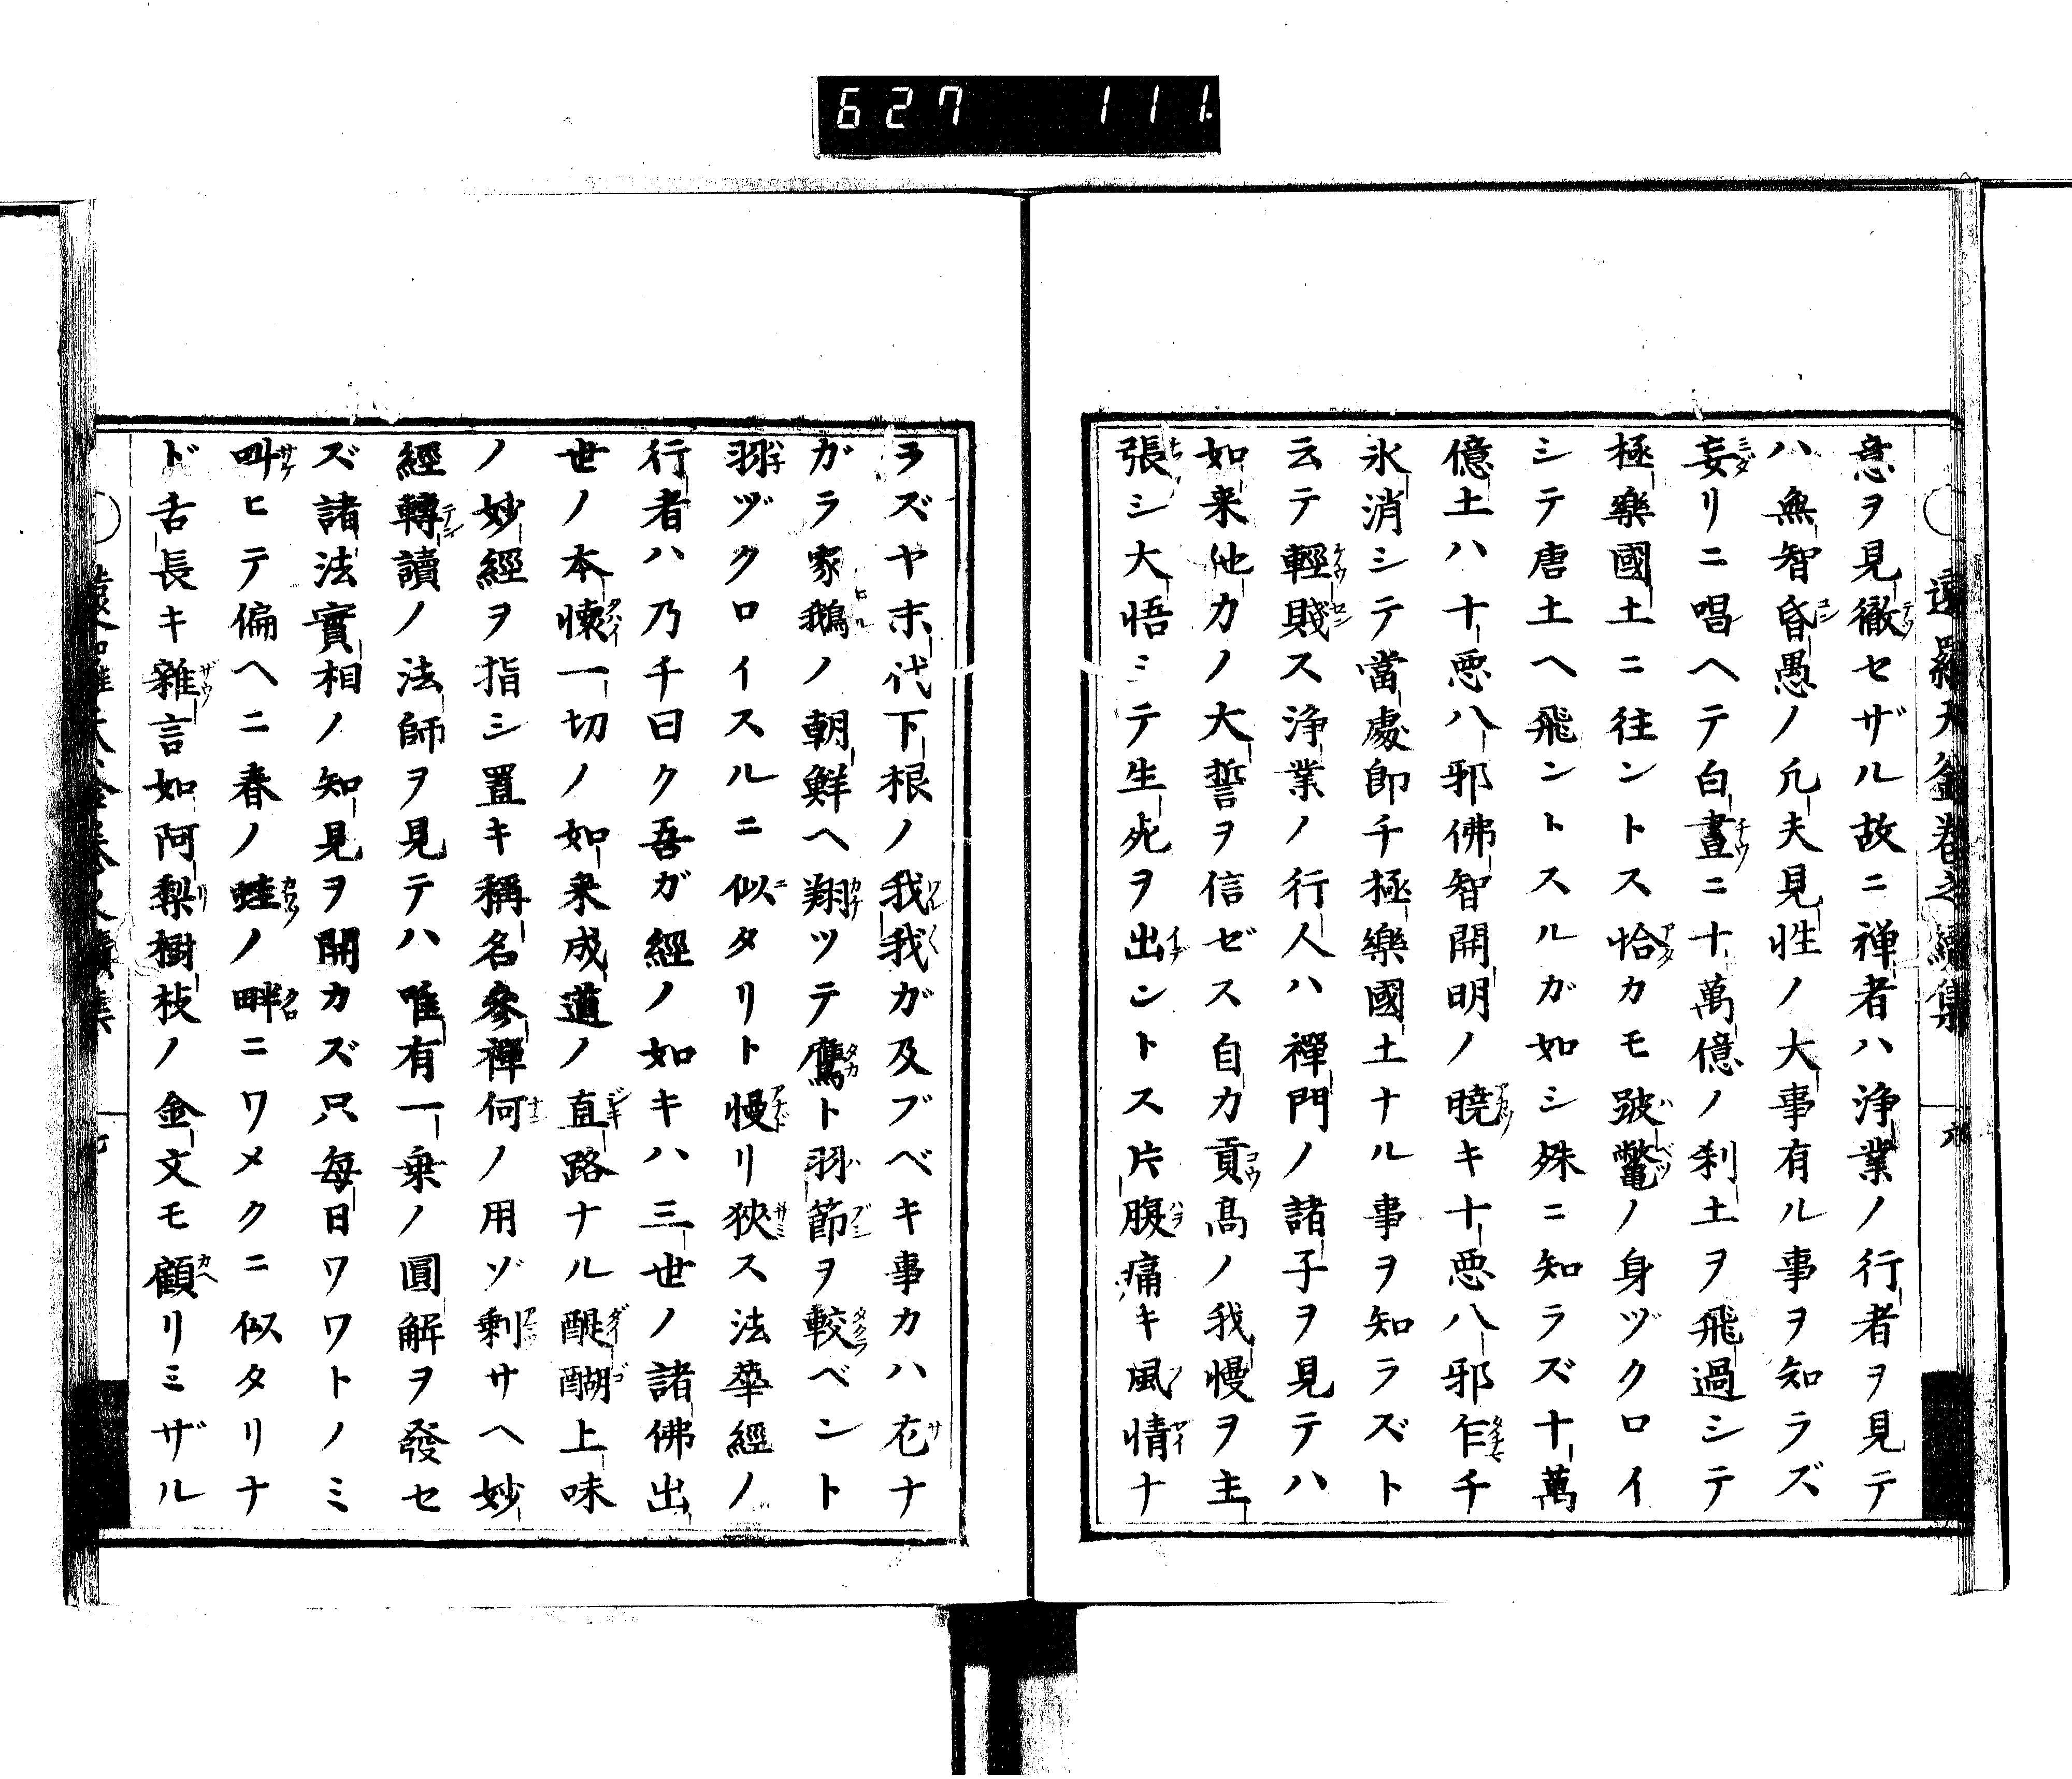 627 111.
遠羅天釜卷之續集 六
意ヲ見徹セザル故ニ禅者ハ浄業ノ行者ヲ見テ
ハ無智昏愚ノ凡夫見性ノ大事有ル事ヲ知ラズ
妄リニ唱ヘテ白晝ニ十萬億ノ刹土ヲ飛過シテ
極樂國土ニ往ントス恰カモ跛鼈ノ身ヅクロイ
シテ唐土ヘ飛ントスルガ如シ殊ニ知ラズ十萬
億土ハ十悪八邪佛智開明ノ曉キ十悪八邪乍チ
氷消シテ當處即チ極樂國土ナル事ヲ知ラズト
云テ輕賤ス浄業ノ行人ハ禪門ノ諸子ヲ見テハ
如来他力ノ大誓ヲ信ゼス自力貢高ノ我慢ヲ主
張シ大悟ミテ生死ヲ出ントス片腹痛キ風情ナ
ヲズヤ末代下根ノ我我ガ及ブベキ事カハ左ナ
ガラ家鵝ノ朝鮮ヘ翔ツテ鷹ト羽節ヲ較ベント
羽ヅクロイスルニ似タリト慢リ狹ス法華經ノ
行者ハ乃チ曰ク吾ガ經ノ如キハ三世ノ諸佛出
世ノ本懐一切ノ如来成道ノ直路ナル醍醐上味
ノ妙經ヲ指シ置キ稱名參禪何ノ用ゾ剰サヘ妙
經轉讀ノ法師ヲ見テハ唯有一乗ノ圓解ヲ發セ
ズ諸法實相ノ知見ヲ開カズ只毎日ワワトノミ
叫ヒテ偏ヘニ春ノ蛙ノ畔ニワメクニ似タリナ
ド舌長キ雜言如阿梨樹枝ノ金文モ顧リミザル